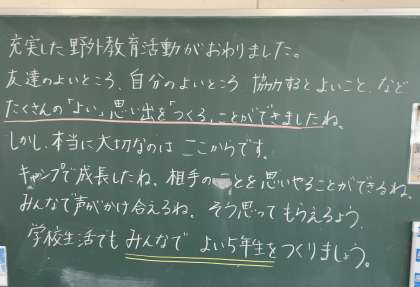 充実した野外教育活動がおわりました。
友達のよいところ、自分のよいところ 協力するとよいこと、など
たくさんの「よい」思い出を「つくる」ことができましたね。
しかし、本当に大切なのは ここからです。
キャンプで成長したね、相手のことを思いやることができるね、
みんなで声がかけ合えるね。そう思ってもらえるよう、
学校生活でも みんなで よい5年生をつくりましょう。